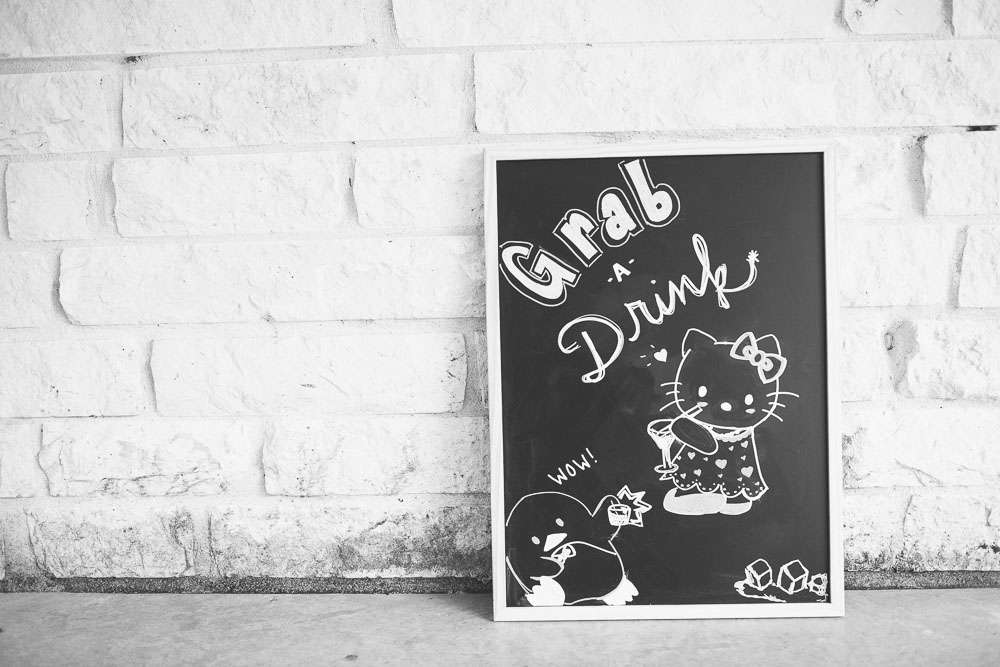 Grab
-A-
Drink
WOW!